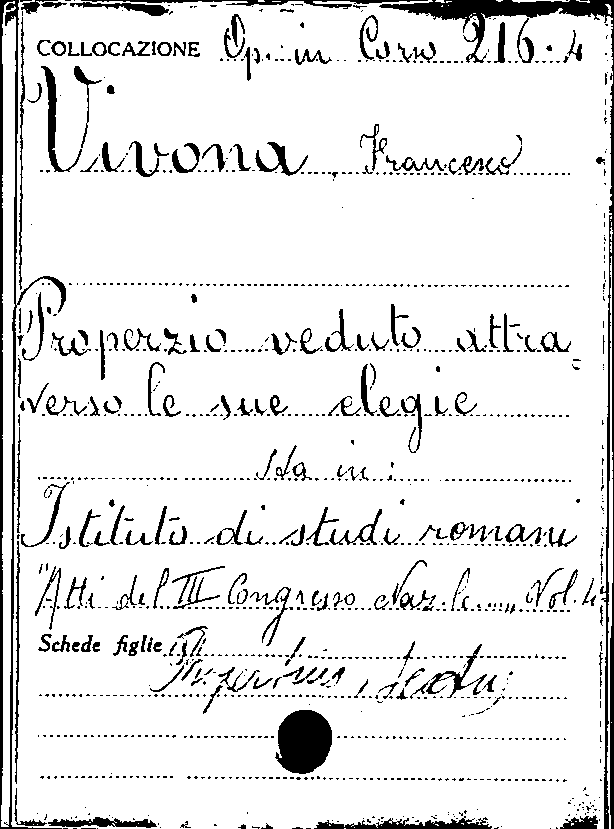 COLLOCAZIONE Op. in Corso 216.4
Vivona, Francesco
Properzio veduto attra=
verso le sue elegie
Sta in:
Istituto di studi romani
"Atti del III Congresso Naz.le ...., Vol. 4º
Schede figlie
Propertius,